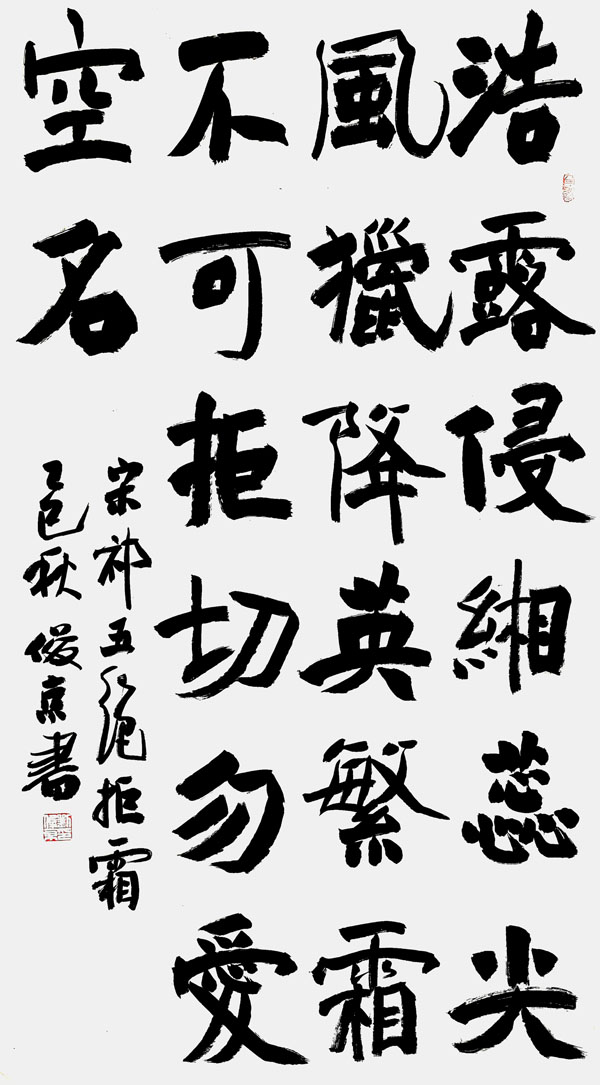 浩露侵緗蕊尖
風獵降英繁霜
不可拒切勿愛
空名
宋祁五絕拒霜
乙巳秋俊京書